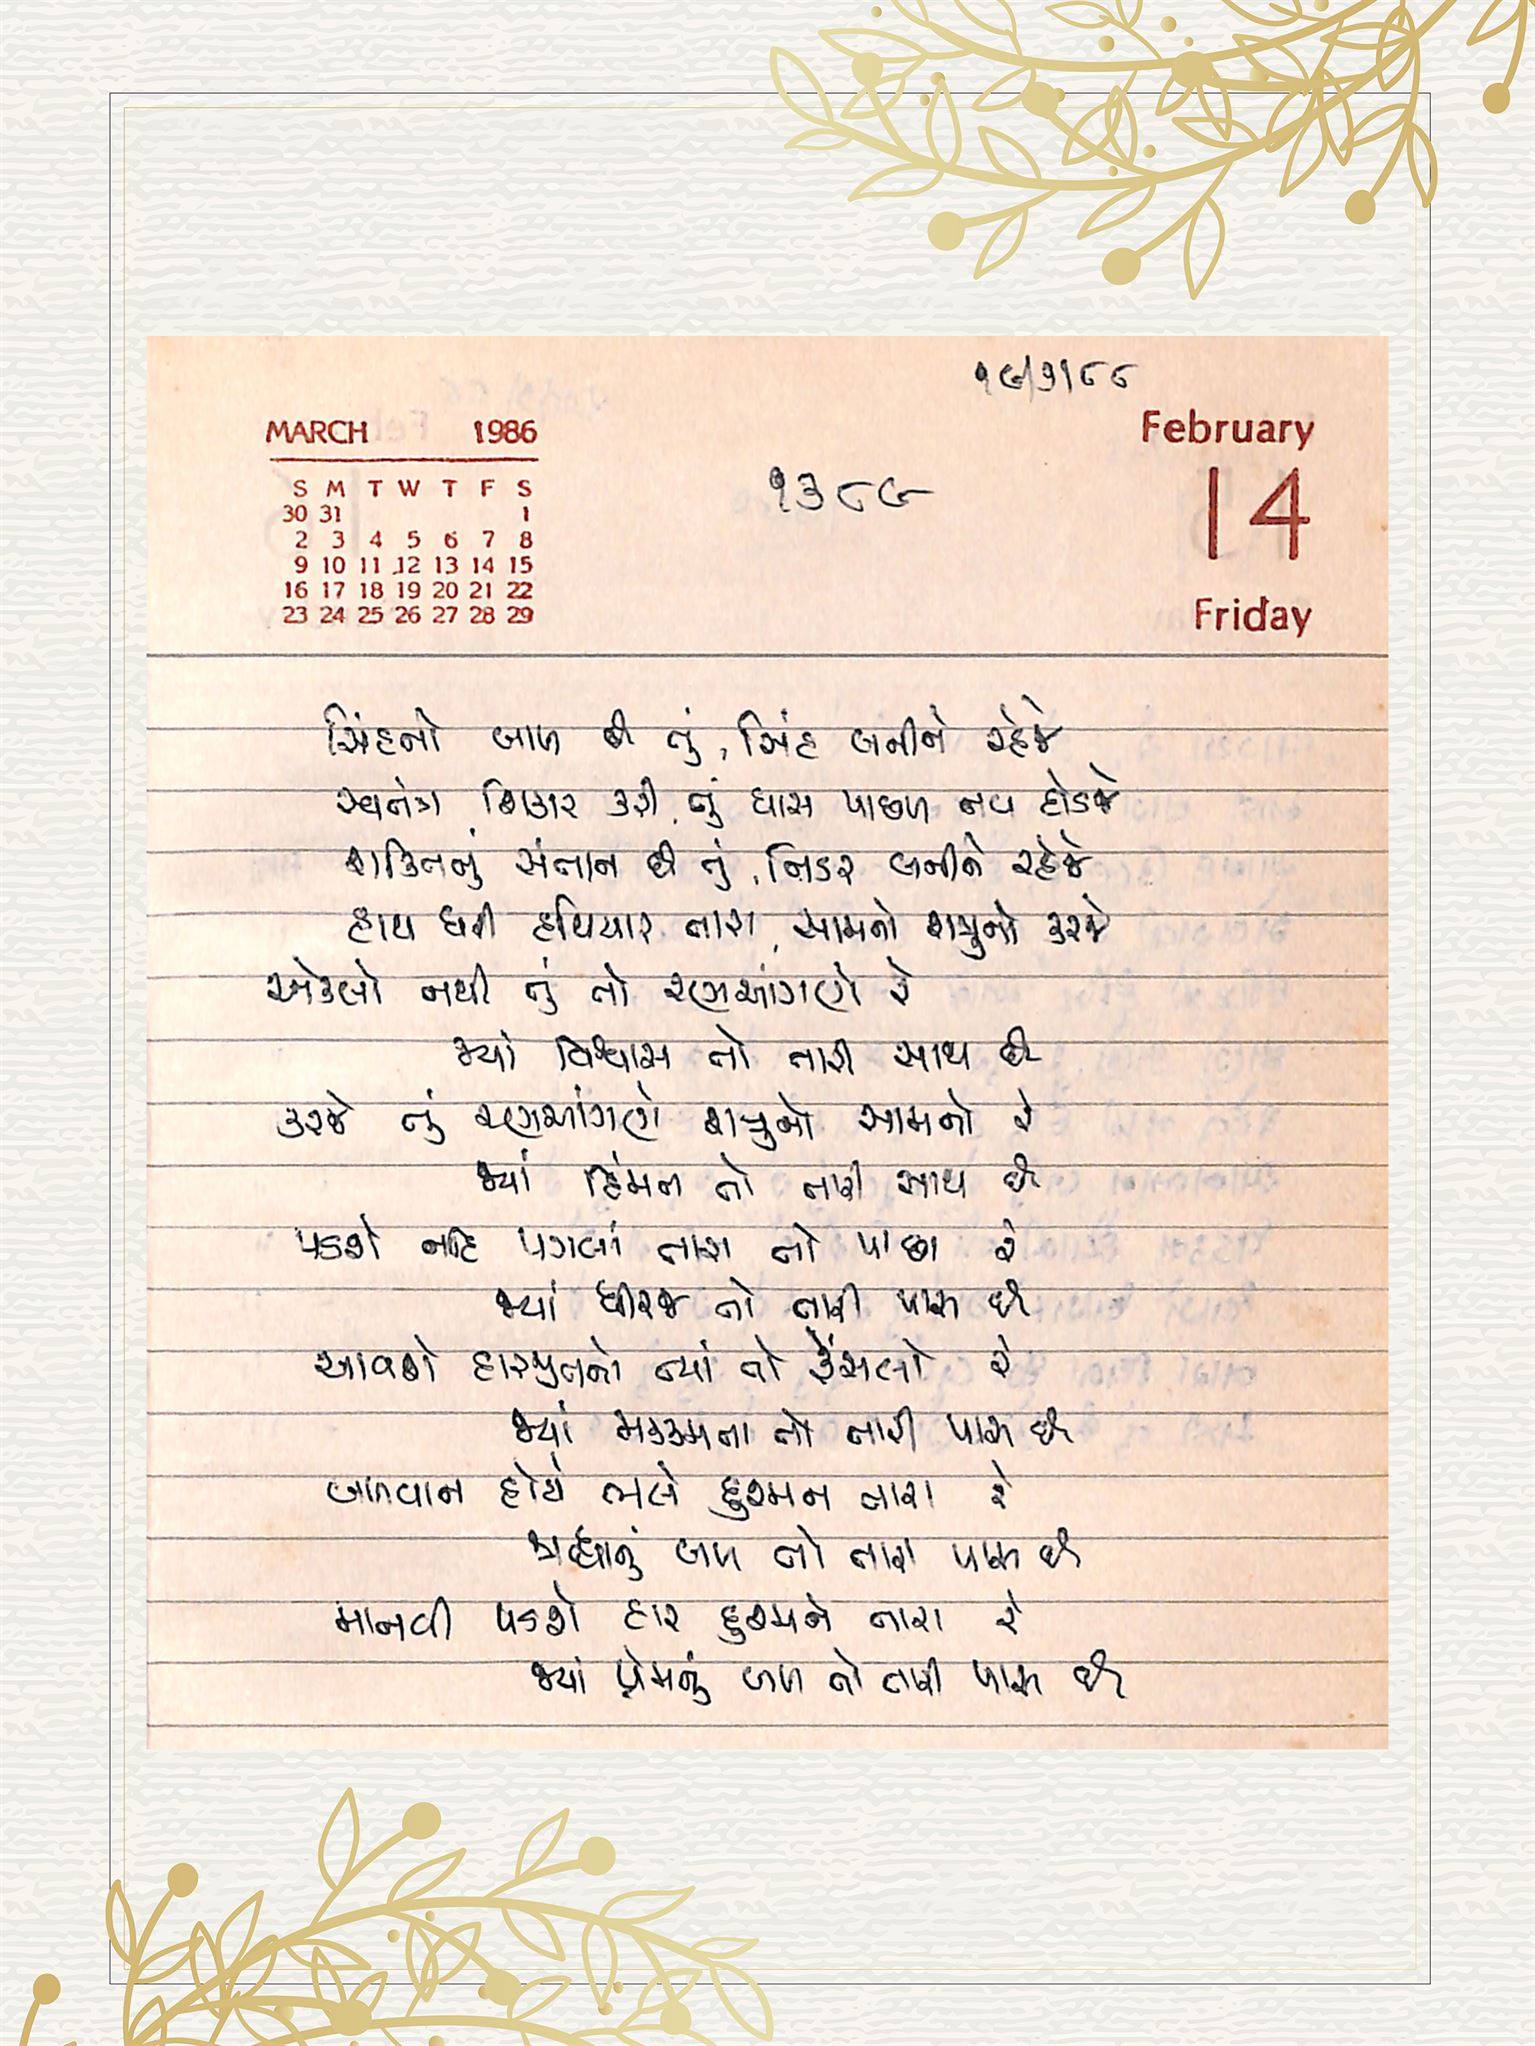 ૧૯/૭/૮૮
MARCH 1986
February
૧૩૮૯
14
S M T W T F S
30 31 1
2 3 4 5 6 7 8
9 10 11 12 13 14 15
16 17 18 19 20 21 22
23 24 25 26 27 28 29
Friday
સિંહનો બાળ છે તું, સિંહ બનીને રહેજે
સ્વતંત્ર શિકાર કરી, તું ઘાસ પાછળ નવ દોડજે
શક્તિનું સંતાન છે તું, નિડર બનીને રહેજે
હાથ ધરી હથિયાર તારા, સામનો શત્રુનો કરજે
એકલો નથી તું તો રણઆંગણે રે
જ્યાં વિશ્વાસ તો તારી સાથ છે
કરજે તું રણઆંગણે શત્રુનો સામનો રે
જ્યાં હિંમત તો તારી સાથ છે
પડશે નહિ પગલાં તારા તો પાછા રે
જ્યાં ધીરજ તો તારી પાસ છે
આવશે હારજીતનો ત્યાં તો ફેંસલો રે
જ્યાં મક્કમતા તો તારી પાસ છે
બળવાન હોયે ભલે દુશ્મન તારા રે
શ્રદ્ધાનું બળ તો તારી પાસ છે
માનવી પડશે હાર દુશ્મને તારા રે
જ્યાં પ્રેમનું બળ તો તારી પાસ છે